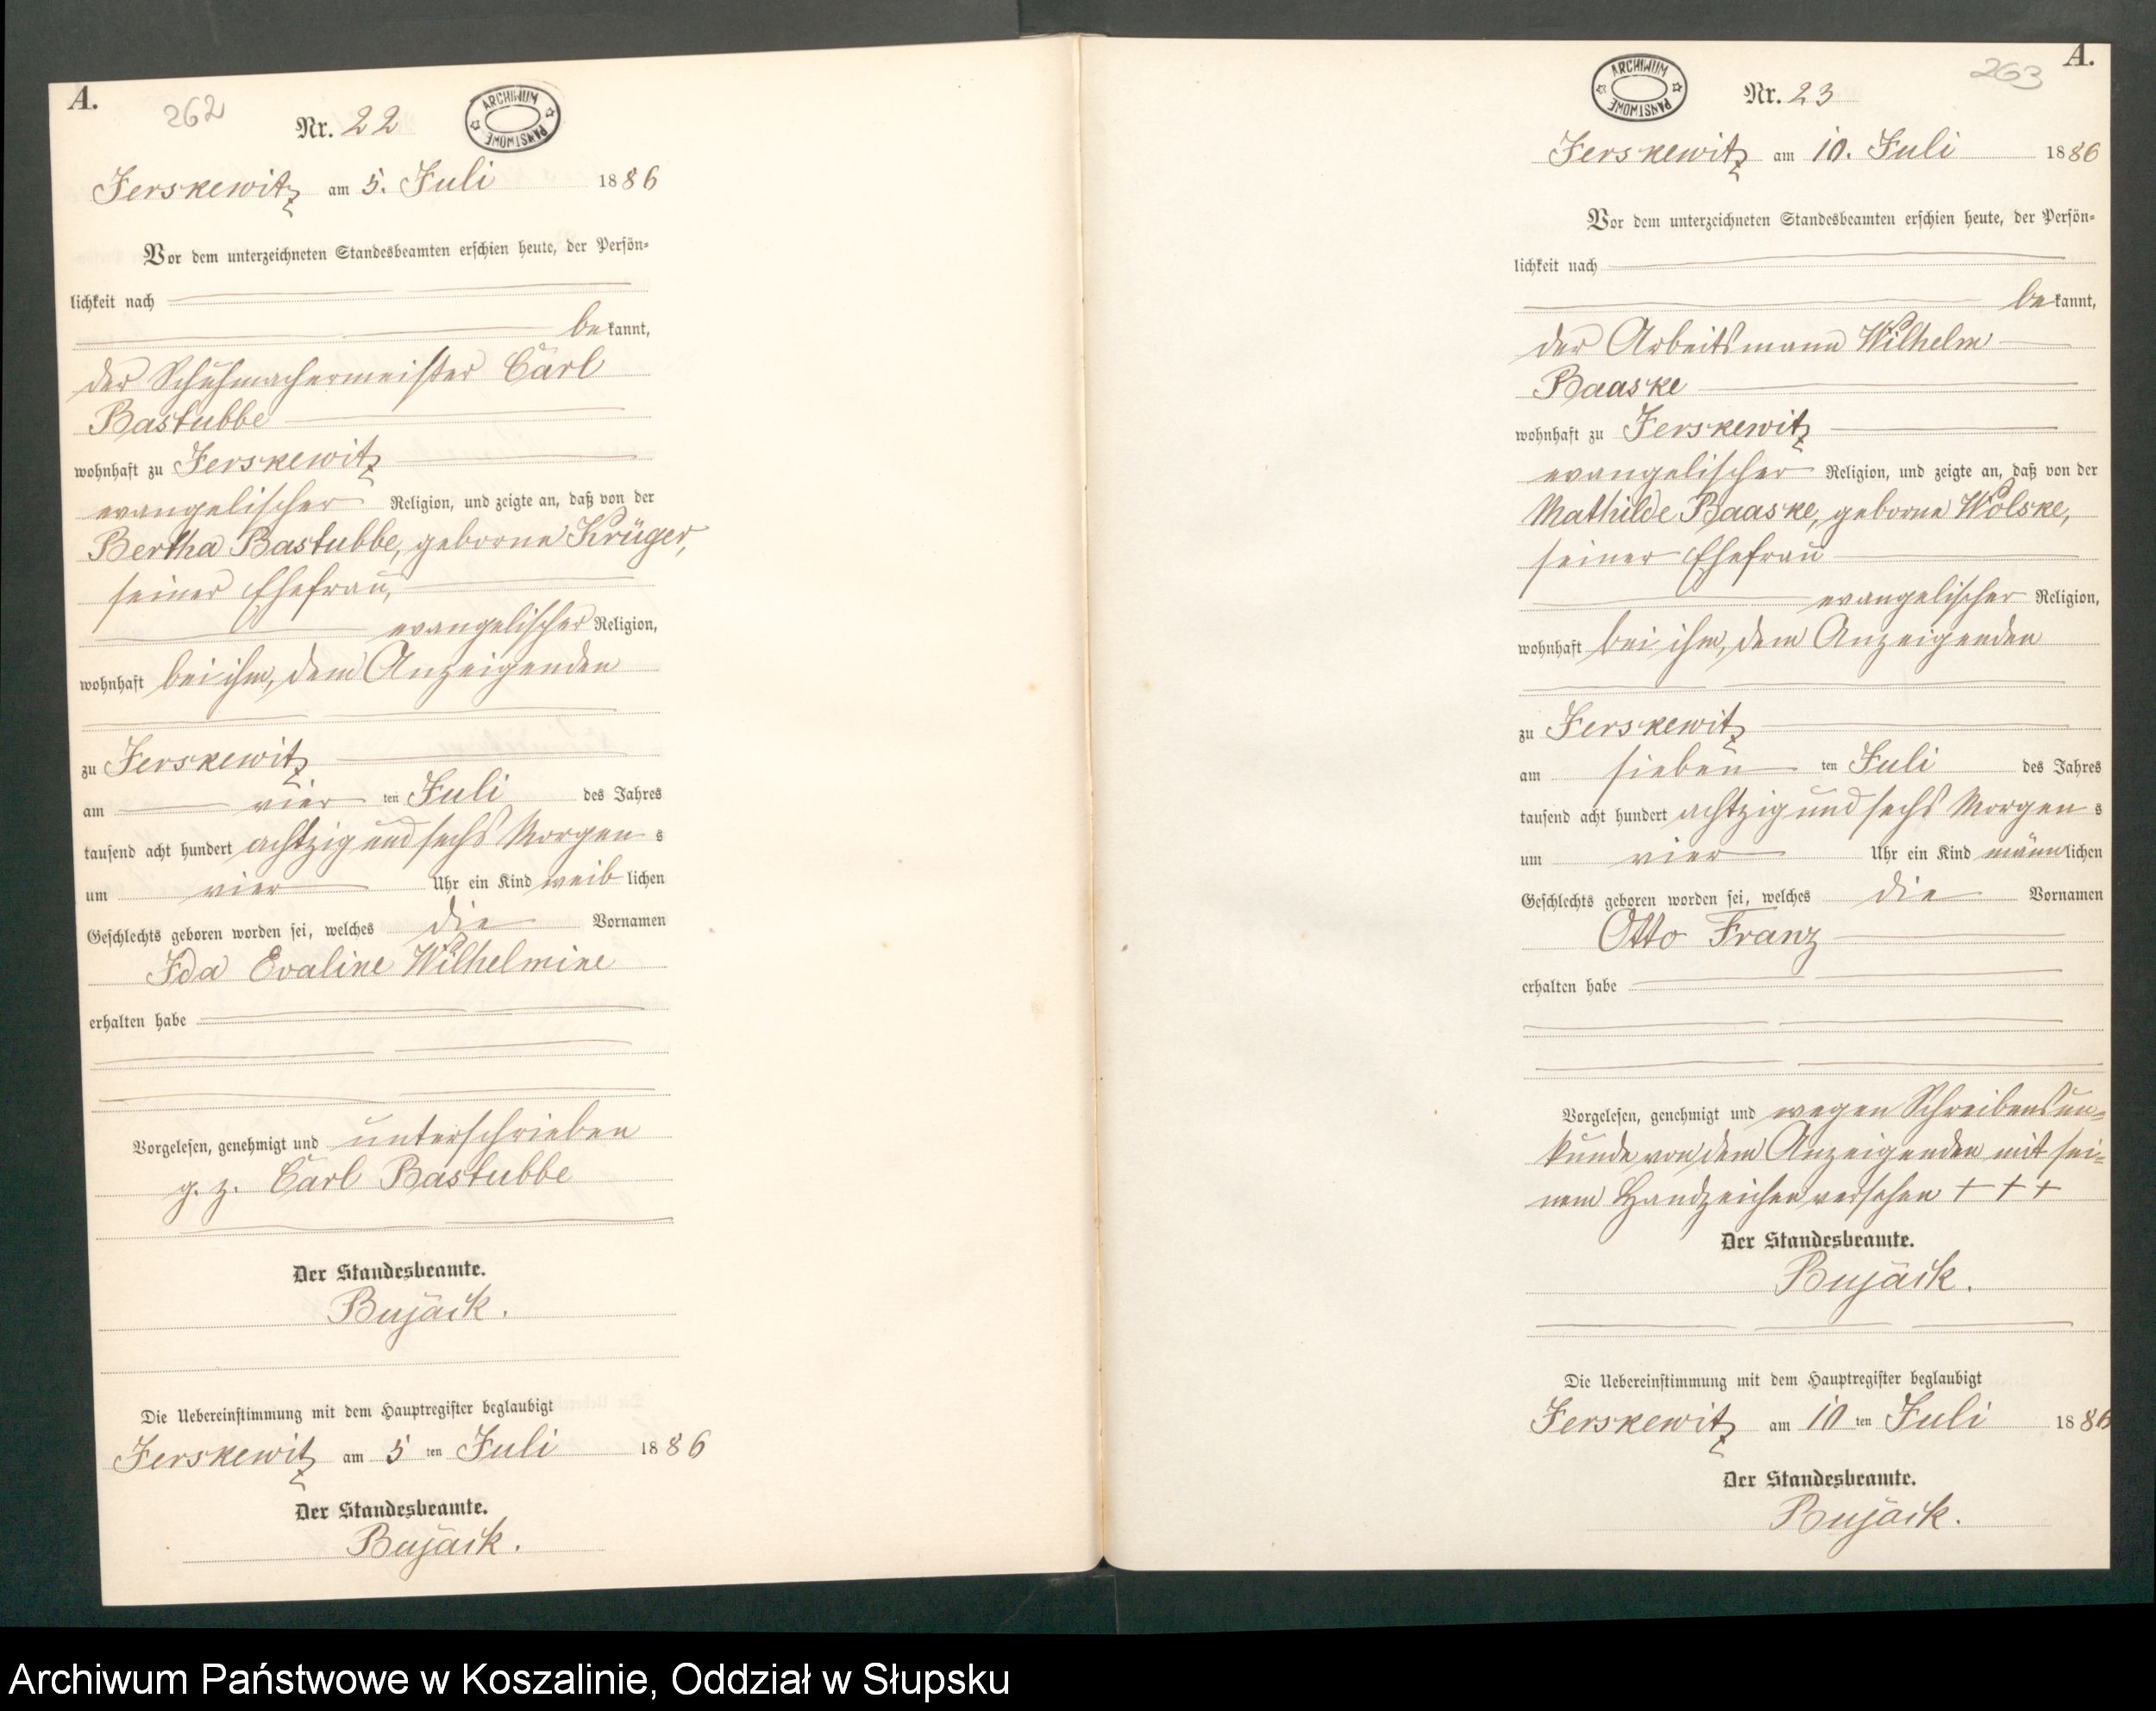 A.
262
Nr. 22
ARCHIWUM PAŃSTWOWE
Jerskewitz am 5. Juli 1886
Vor dem unterzeichneten Standesbeamten erschien heute, der Persön-
lichkeit nach
bekannt,
der Schuhmachermeister Carl
Bastubbe
wohnhaft zu Jerskewitz
evangelischer Religion, und zeigte an, daß von der
Bertha Bastubbe, geborne Krüger,
seiner Ehefrau,
evangelischer Religion,
wohnhaft bei ihm, dem Anzeigenden
zu Jerskewitz
am vier ten Juli des Jahres
tausend acht hundert achtzig und sechs Morgens
um vier Uhr ein Kind weiblichen
Geschlechts geboren worden sei, welches die Vornamen
Ida Evaline Wilhelmine
erhalten habe
Vorgelesen, genehmigt und unterschrieben
g. z. Carl Bastubbe
Der Standesbeamte.
Bujack.
Die Uebereinstimmung mit dem Hauptregister beglaubigt
Jerskewitz am 5 ten Juli 1886
Der Standesbeamte.
Bujack.
A.
263
ARCHIWUM PAŃSTWOWE
Nr. 23
Jerskewitz am 10. Juli 1886
Vor dem unterzeichneten Standesbeamten erschien heute, der Persön-
lichkeit nach
bekannt,
der Arbeitsmann Wilhelm
Baaske
wohnhaft zu Jerskewitz
evangelischer Religion, und zeigte an, daß von der
Mathilde Baaske, geborne Wolske,
seiner Ehefrau
evangelischer Religion,
wohnhaft bei ihm, dem Anzeigenden
zu Jerskewitz
am sieben ten Juli des Jahres
tausend acht hundert achtzig und sechs Morgens
um vier Uhr ein Kind männlichen
Geschlechts geboren worden sei, welches die Vornamen
Otto Franz
erhalten habe
Vorgelesen, genehmigt und wegen Schreibensun-
kunde von dem Anzeigenden mit sei-
nem Handzeichen versehen + + +
Der Standesbeamte.
Bujack.
Die Uebereinstimmung mit dem Hauptregister beglaubigt
Jerskewitz am 10 ten Juli 1886
Der Standesbeamte.
Bujack.
Archiwum Państwowe w Koszalinie, Oddział w Słupsku